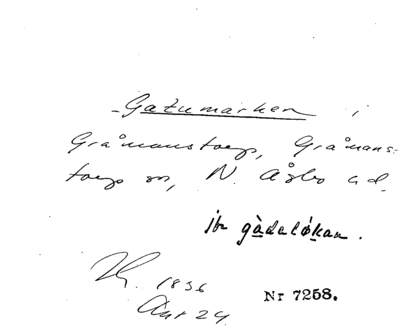 Gatumarken i
Gråmanstorp, Gråmans-
torps sn, N. Åsbo hd.
jbr gàdaløkan.
1836
Akt 24
Nr 7258.